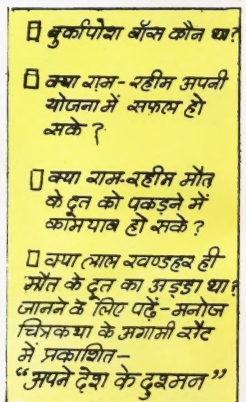 ▯ बुर्कापोश बॉस कौन था?
▯ क्या राम-रहीम अपनी
योजना में सफल हो
सके ?
▯ क्या राम-रहीम मौत
के दूत को पकड़ने में
कामयाब हो सके ?
▯ क्या लाल खण्डहर ही
मौत के दूत का अड्डा था?
जानने के लिए पढ़ें-मनोज
चित्रकथा के अगामी सैट
में प्रकाशित-
“अपने देश के दुश्मन”